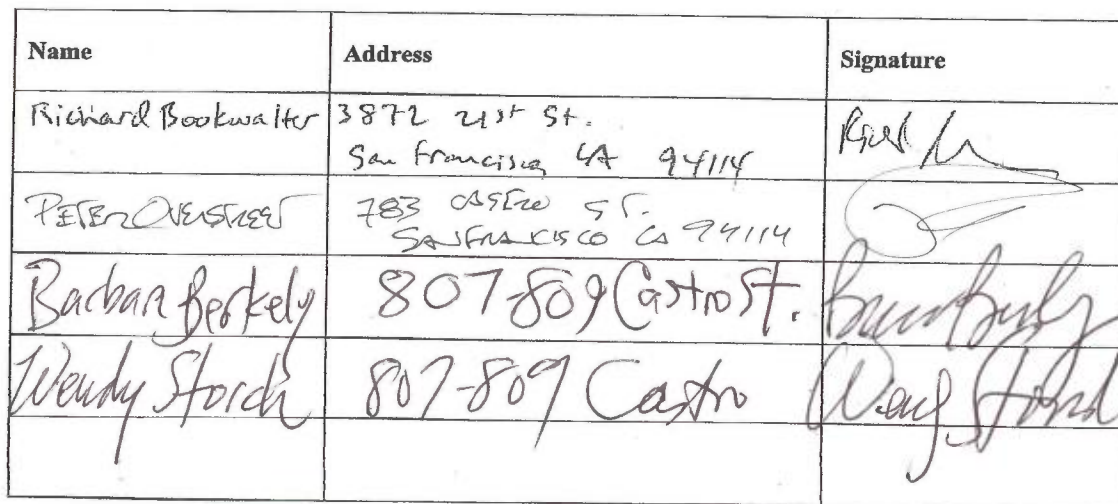 Name Address Signature
Richard Bookwalter 3872 21st St.
San Francisco, CA 94114
PETER OVERSTREET 783 CASTRO ST.
SAN FRANCISCO CA 94114
Barbara Berkely 807-809 Castro St.
Wendy Storch 807-809 Castro Wendy Storch